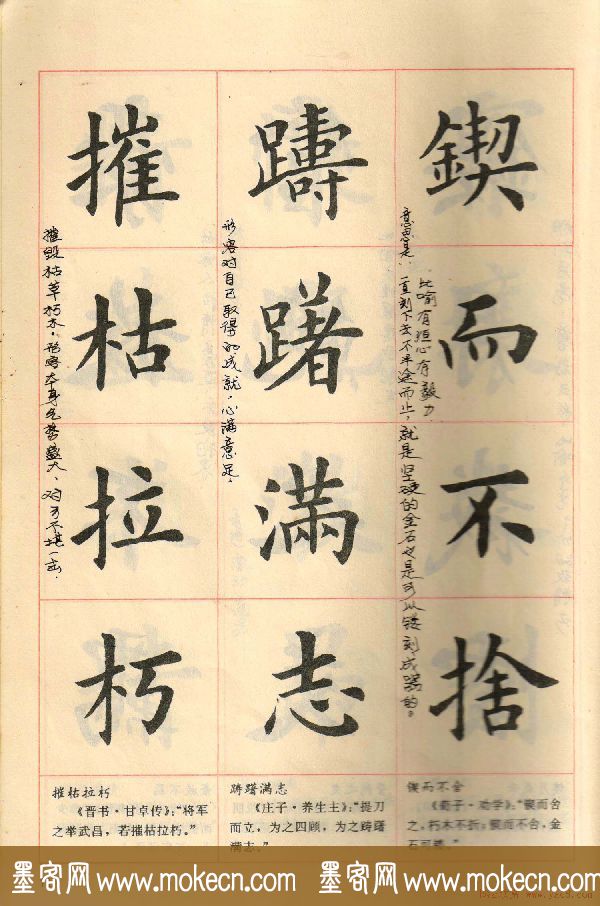 鍥而不捨
躊躇滿志
摧枯拉朽
意思是:一直刻下去不半途而止,就是坚硬的金石也是可以镂刻成器的。
比喻有恒心有毅力
形容对自己取得的成就,心满意足。
摧毁枯草朽木,形容本身气势盛大,对方不堪一击.
锲而不舍
《荀子·劝学》:“锲而舍
之,朽木不折;锲而不舍,金
石可镂。”
踌躇满志
《庄子·养生主》:“提刀
而立,为之四顾,为之踌躇
满志。”
摧枯拉朽
《晋书·甘卓传》:“将军
之举武昌,若摧枯拉朽。”
墨客网 www.mokecn.com 墨客网 www.mokecn.com